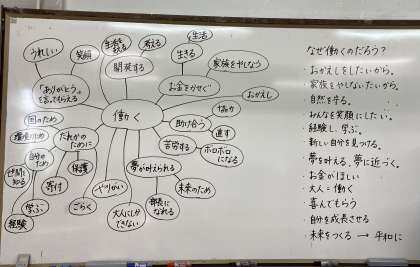 うれしい
笑顔
生活を
支える
考える
生活
開発する
生きる
家族をやしなう
「ありがとう」
を言ってもらえる
お金をかせぐ
おかえし
働く
国のため
環境のため
だれかの
ために
助け合う
協力
直す
自分の
ため
保護
苦労する
ボロボロ
になる
世間を
知る
寄付
夢が叶えられる
学ぶ
ごらく
やりがい
未来のため
経験
大人にしか
できない
部長に
なれる
なぜ働くのだろう?
・おかえしをしたいから。
・家族をやしないたいから。
・自然を守る。
・みんなを笑顔にしたい。
・経験し、学ぶ。
・新しい自分を見つける。
・夢を叶える。夢に近づく。
・お金がほしい
・大人=働く
・喜んでもらう
・自分を成長させる
・未来をつくる → 平和に